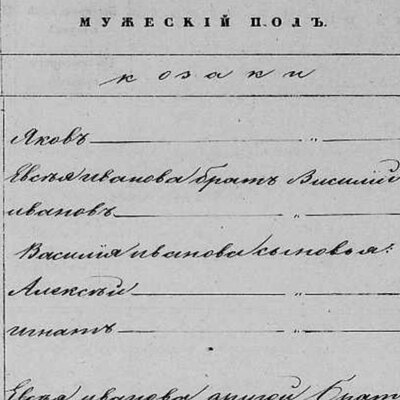 МУЖЕСКІЙ ПОЛЪ.
козаки
Яковъ "
Евсѣя иванова братъ Василій
ивановъ "
Василія иванова сыновья:
Алексѣй "
игнатъ "
Евсѣя иванова другой братъ